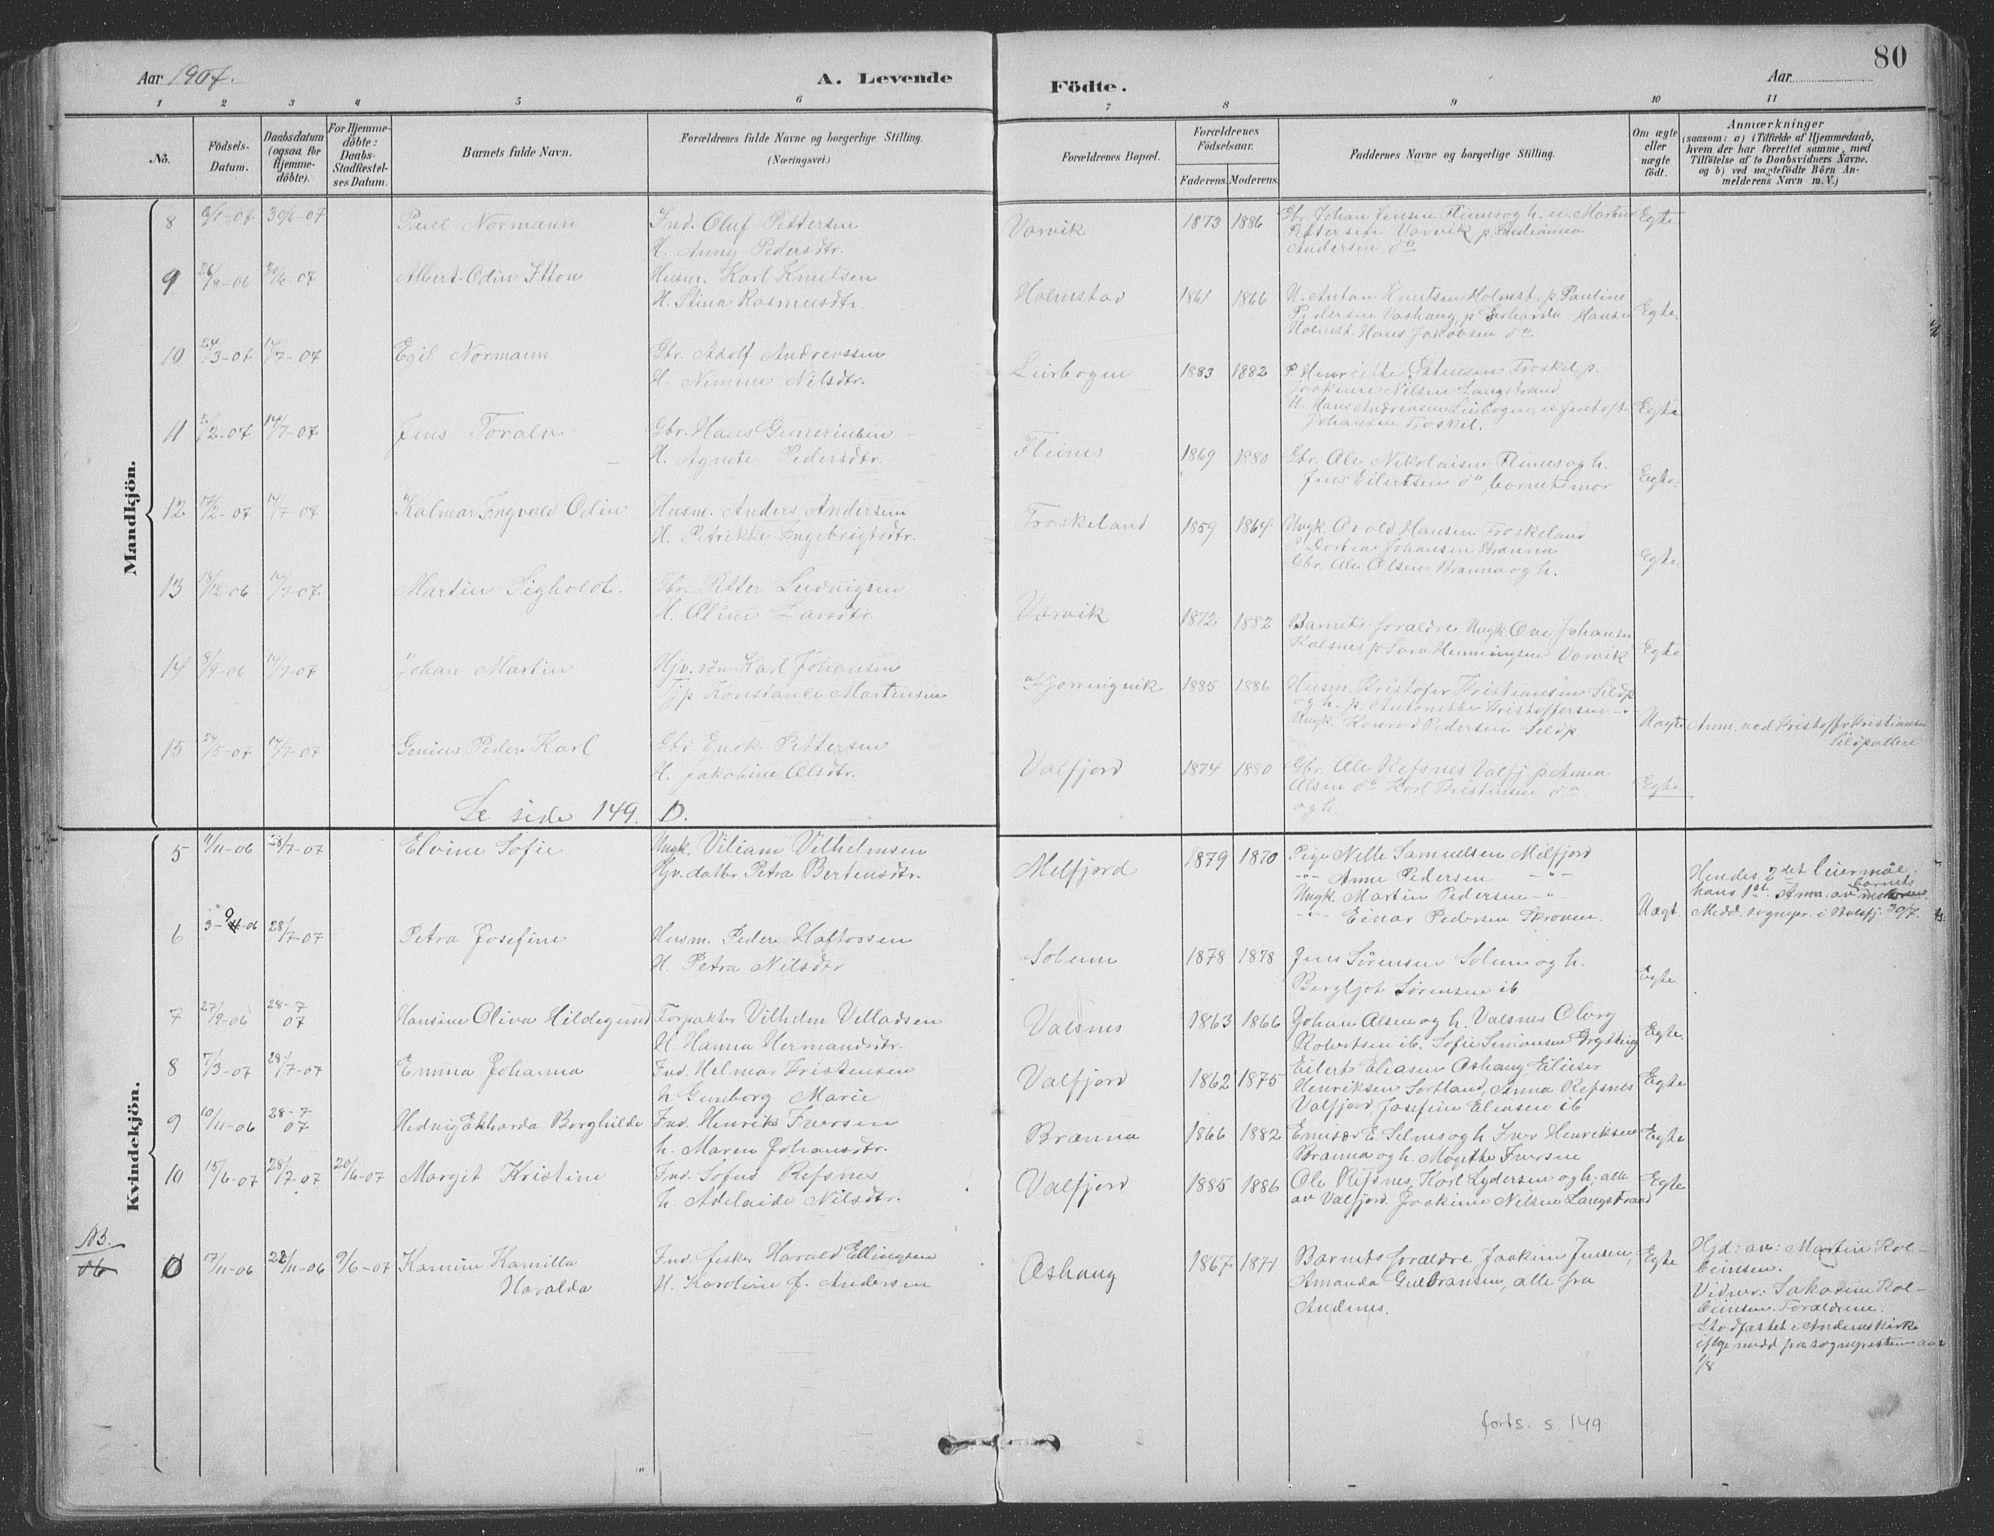 80
Aar 1907.
A. Levende
Födte.
Aar
1 2 3 4 5 6 7 8 9 10 11
No.
Födsels-Datum.
Daabsdatum (ogsaa for Hjemme-döbte).
For Hjemme-döbte: Daabs-Stadfæstel-ses Datum.
Barnets fulde Navn.
Forældrenes fulde Navne og borgerlige Stilling.
(Næringsvei.)
Forældrenes Bopæl.
Forældrenes Födselsaar.
Faderens. Moderens.
Faddernes Navne og borgerlige Stilling.
Om ægte eller uægte födt.
Anmærkninger
(saasom: a) i Tilfælde af Hjemmedaab, hvem der har forrettet samme, med Tilföielse af to Daabsvidners Navne, og b) ved uægtefödte Börn An-melderens Navn m. V.)
Mandkjön.
8 6/1-07 30/6-07 Paul Normann Ind. Oluf Pettersen Vorvik 1873 1886 Gbr. Johan Jensen Flines og h. u. Martin Egte
H. Anny Pedersdtr. Pettersen Vorvik p.
Andersen do
9 26/8-06 30/6-07 Albert Odin Itton Husm. Karl Knutsen Holmstad 1861 1866 U. Anton Knutsen Holmst. p. Pauline Egte.
H. Stina Rasmusdtr. Pedersen Vashaug, p. Gerharda Hansen
Holmst. Hans Jakobsen do
10 24/3-07 14/7-07 Egil Normann Gbr. Adolf Andreassen Leirbogen 1883 1882 P. Henriette Froskel. p.
H. Nimine Nilsdtr. Joakime Nilsen Langstrand
U. Hans Andreassen Leirbogen, u. Jentoft Egte
Johansen Froskel.
11 2/2-07 14/7-07 Jens Toralv Gbr. Hans Flines 1869 1880 Gbr. Ole Nikolaisen Flines og h. Egte
H. Agnete Pedersdtr. Jens Eilertsen do, barnets mor
12 17/2-07 14/7-07 Kalmar Ingvald Odin Husm. Anders Andersen Froskeland 1859 1864 Ungk. Hansen Froskeland
H. Petrikke Ingebrigtsdtr. P. Dortea Johansen Brenna Egte
Gbr. Ole Olsen Brenna og h.
13 18/12-06 14/7-07 Martin Sigholdt. Gbr. Petter Ludvigsen Vorvik 1872 1882 Barnets foraldre Ungk. Ove Johansen
H. Oline Larsdtr. p. Sara Henningsen Vorvik Egte
14 8/9-06 14/7-07 Johan Martin Hjv. søn Karl Johansen Kjørringvik 1885 1886 Husm. Kristofer Kristiansen Sildp.
Tjp. Konstanse Martinsen og h. p. Antonette Kristoffersen -"-
Ungk. Konrad Pedersen Sildp. Uegte Anm. ved Kristoffer Kristiansen
Sildpollen
15 27/5-07 14/7-07 Genius Peder Karl Gbr. Enok Pettersen Valfjord 1874 1880 Gbr. Ole Refsnes Valfj. p. Anna
H. Jakobine Olsdtr. Olsen do Karl Kristensen do Egte
og h.
Se side 149. D.
Kvindekjön.
5 11/11-06 28/7-07 Elvine Sofie Ungk. Viliam Vilhelmsen Melfjord 1879 1870 Pige Nelle Samuelsen Melfjord
Hjv. datter Petra Bertensdtr. -"- Anne Pedersen -"-
Ungk. Martin Pedersen -"-
-"- Einar Pedersen Skroven. Uegt
Hendes 2det leiermål
hans 1st Anm. av barnets
Medd. sognepr. i 30/7.
6 3-9-06 28/7-07 Petra Josefine Husm. Peder Haftorsen Solum 1878 1878 Jens Sørensen Solum og h. Egte
H. Petra Nilsdtr Bergljot Sørensen ib
7 27/9-06 28-7 07 Hansine Oliva Hildegund Forpakter Vilhelm Velladsen Valsnes 1863 1866 Johan Olsen og h. Valsnes Oberg Egte.
H. Hanna Hermandsdtr. Robertsen ib. Sofie Simonsen Grytting
8 7/3-07 28/7-07 Emma Johanna Ind. Helmar Kristensen Valfjord 1862 1875 Eilert Eliasen Oshaug, Elieser Egte
h Gunborg Marie Henriksen Sortland, Anna Refsnes
Valfjord, Josefine Eliasen ib
9 10/11-06 28-7 07 Hedvig Ekharda Borghilde Ind. Henrik Iversen Brænna 1866 1882 E. Selnes og h Iver Henriksen Egte
h. Maren Johansdtr. Brænna og h. Iversen
10 15/6-07 28/7-07 20/6-07 Margit Kristine Ind. Sofus Refsnes Valfjord 1885 1886 Ole Refsnes, Karl Lydersen og h, alle Egte
h. Adelaide Nilsdtr. av Valfjord. Joakime Nilsen Langstrand
N3.
06 0 17/11-06 22/11-06 9/6-07 Kamine Kamilla Ind. fisker Harald Ellingsen Oshaug 1867 1871 Barnets foraldre Joakim Jensen, Egte
Haralda H. Karoline f. Andersen Amanda Gulbransen, alle fra
Andenes.
Hjd: av: Martin Kol-
beinsen.
Vidner: Sakarine Kol-
beinsen. Foraldrene.
Stadfæstet i Andenes kirke
ifølge medd fra sognepresten
1/8
forts. s. 149